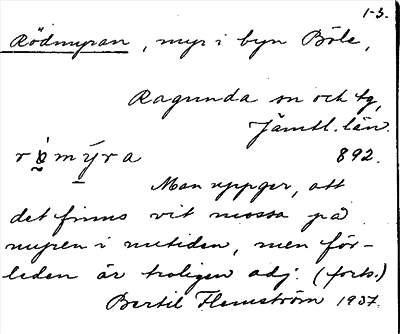 1-3.
Rödmyran, myr i byn Böle,
Ragunda sn och tg,
Jämtl. län.
892.
Man uppger, att
det finns vit mossa på
myren i nutiden, men för-
leden är troligen adj. (forts.)
Bertil Flemström 1937.